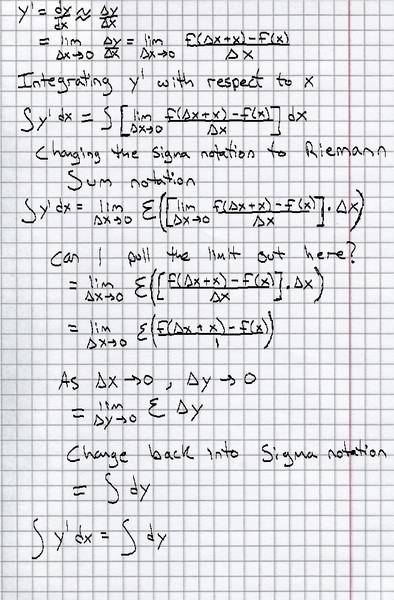 y' = dy/dx ≈ Δy/Δx
= lim Δx→0 Δy/Δx = lim Δx→0 f(Δx+x)-f(x)/Δx
Integrating y' with respect to x
∫y' dx = ∫[lim Δx→0 f(Δx+x)-f(x)/Δx] dx
Changing the sigma notation to Riemann
Sum notation
∫y' dx = lim Δx→0 Σ([lim Δx→0 f(Δx+x)-f(x)/Δx]·Δx)
Can I pull the limit out here?
= lim Δx→0 Σ([f(Δx+x)-f(x)/Δx]·Δx)
= lim Δx→0 Σ(f(Δx+x)-f(x)/1)
As Δx→0, Δy→0
= lim Δy→0 Σ Δy
Change back into Sigma notation
= ∫dy
∫y' dx = ∫dy